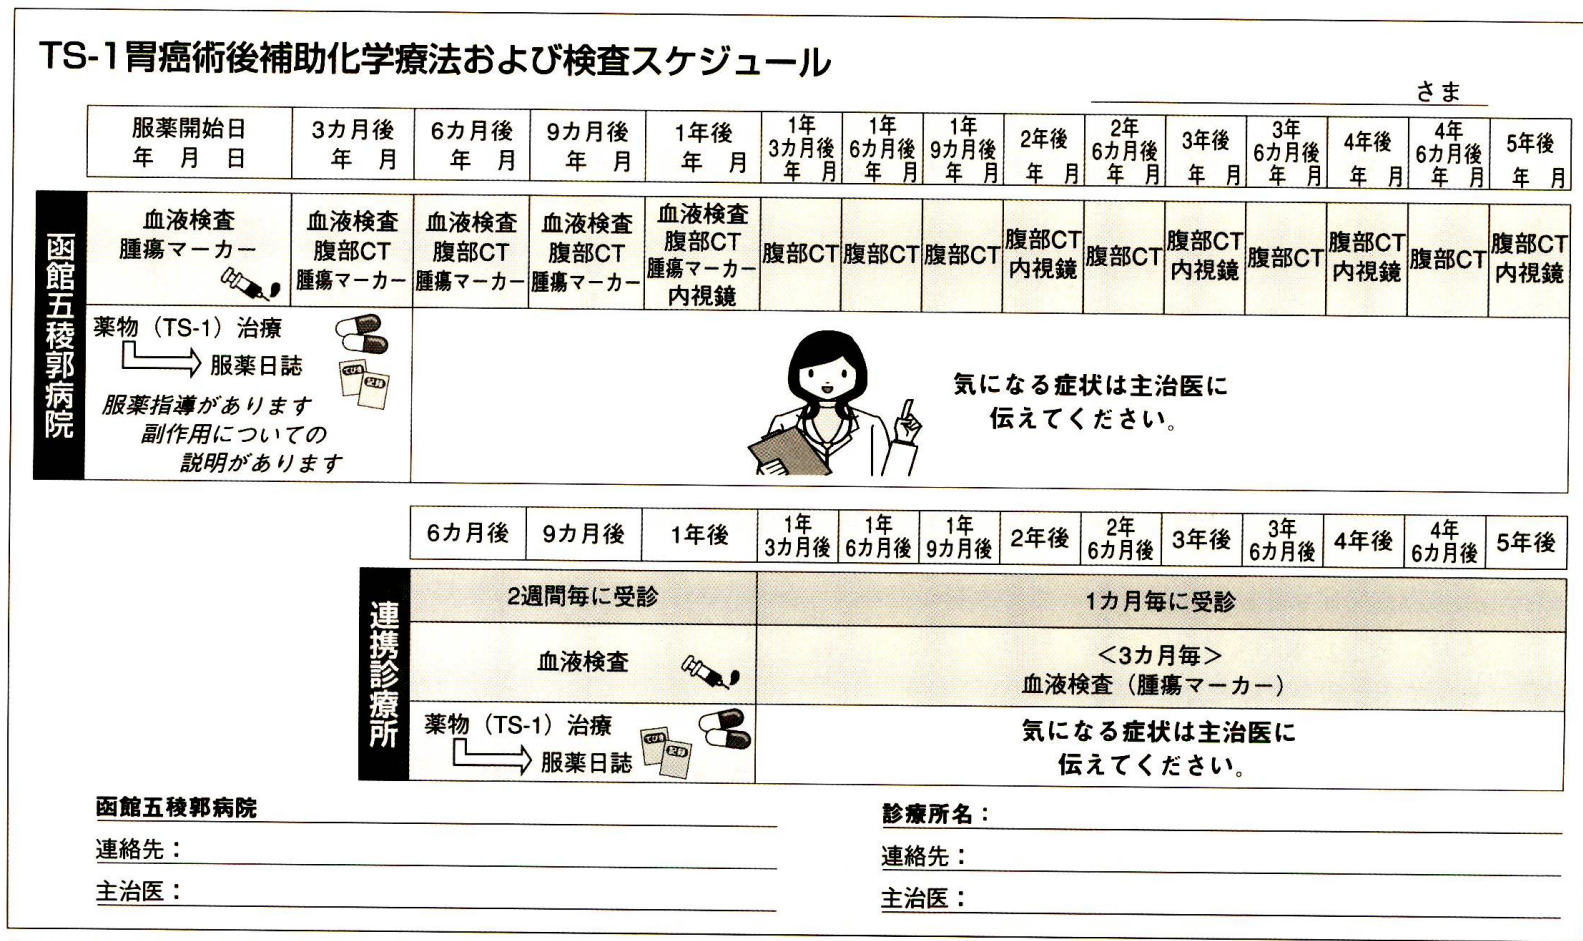 TS-1胃癌術後補助化学療法および検査スケジュール
さま
服薬開始日
年 月 日
3カ月後
年 月
6カ月後
年 月
9カ月後
年 月
1年後
年 月
1年
3カ月後
年 月
1年
6カ月後
年 月
1年
9カ月後
年 月
2年後
年 月
2年
6カ月後
年 月
3年後
年 月
3年
6カ月後
年 月
4年後
年 月
4年
6カ月後
年 月
5年後
年 月
函館五稜郭病院
血液検査
腫瘍マーカー
血液検査
腹部CT
腫瘍マーカー
血液検査
腹部CT
腫瘍マーカー
血液検査
腹部CT
腫瘍マーカー
血液検査
腹部CT
腫瘍マーカー
内視鏡
腹部CT
腹部CT
腹部CT
腹部CT
内視鏡
腹部CT
腹部CT
内視鏡
腹部CT
腹部CT
内視鏡
腹部CT
腹部CT
内視鏡
薬物（TS-1）治療
服薬日誌
服薬指導があります
副作用についての
説明があります
気になる症状は主治医に
伝えてください。
6カ月後
9カ月後
1年後
1年
3カ月後
1年
6カ月後
1年
9カ月後
2年後
2年
6カ月後
3年後
3年
6カ月後
4年後
4年
6カ月後
5年後
連携診療所
2週間毎に受診
1カ月毎に受診
血液検査
＜3カ月毎＞
血液検査（腫瘍マーカー）
薬物（TS-1）治療
服薬日誌
気になる症状は主治医に
伝えてください。
函館五稜郭病院
連絡先：
主治医：
診療所名：
連絡先：
主治医：